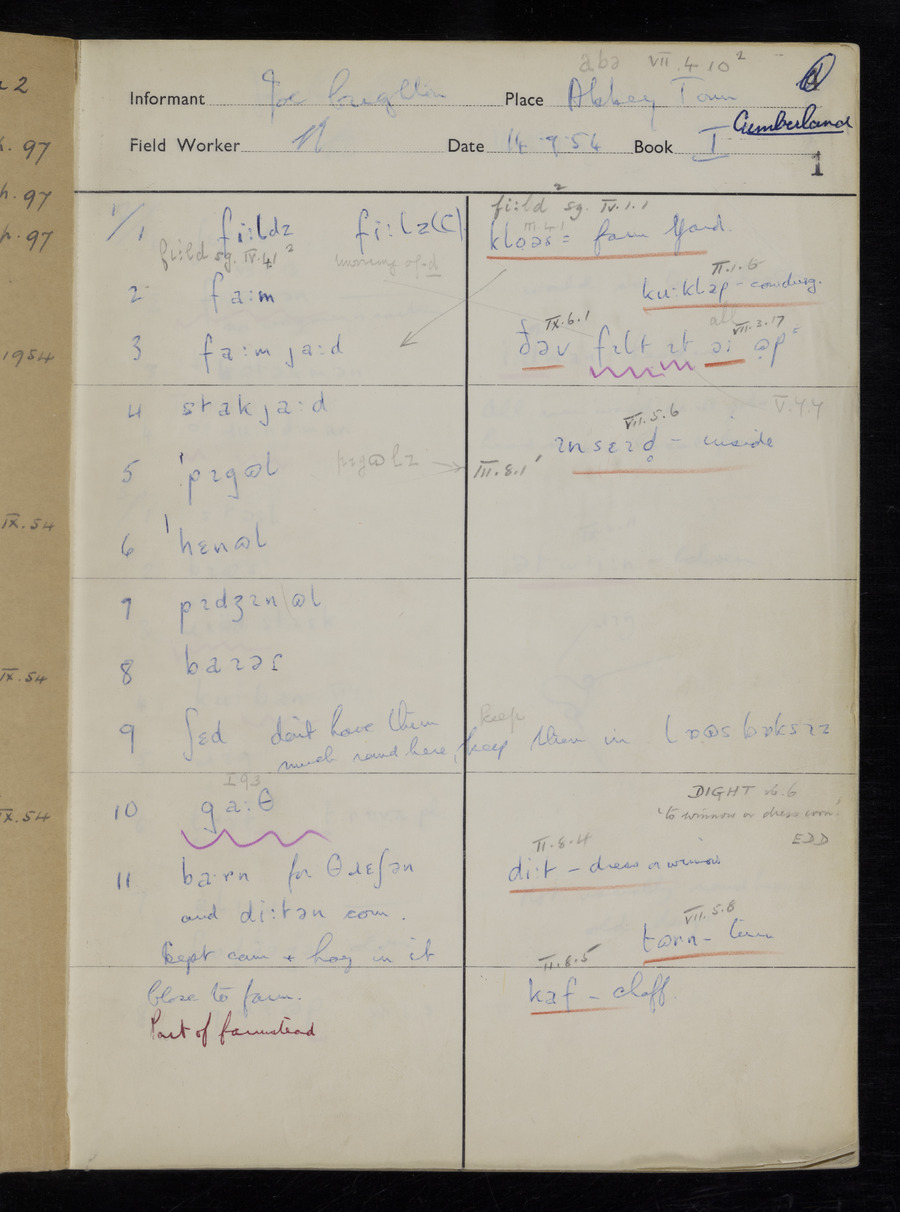 2
97
97
97
1954
IX.54
IX.54
IX.54
VII.4.10²
Informant Joe Place Abbey Town
Cumberland
Field Worker N Date 14.9.54 Book I
1
I/1 fiːldz fiːlz(C)
fiːld sg. IV.4.1²
2 faːm
3 faːm jaːd
4 stakjaːd
5 ˈpɪgɷl pɪgɷlz
6 ˈhɛnɷl
7 pɪdʒɪnɷl
8 baɪəs
9 ʃɛd don't have them
much round here, keep them in lɔɷs bɒksɪz
keep
10 gaːθ
I 9 3
11 baːrn for θɹɛʃən
and diːtən corn.
kept corn + hay in it
Close to farm.
Part of farmstead
fiːld² sg. IV.1.1
klɒəs = farm yard.
II.1.6
kuːklap - cowdung.
IX.6.1 all VII.3.17
ðəv fɪlt ɪt ɔː ɒp
V.4.4
VII.5.6
ɪnsɛɪd̥ - inside
III.8.1
DIGHT v6.6
'to winnow or dress corn'
EDD
II.8.4
diːt - dress or winnow
VII.5.8
tɔrn - turn
II.8.5
kaf - chaff.